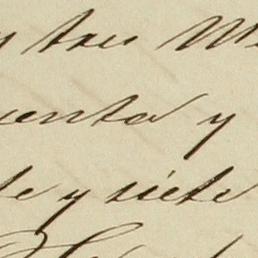 y tres M
uenta y
te y siete